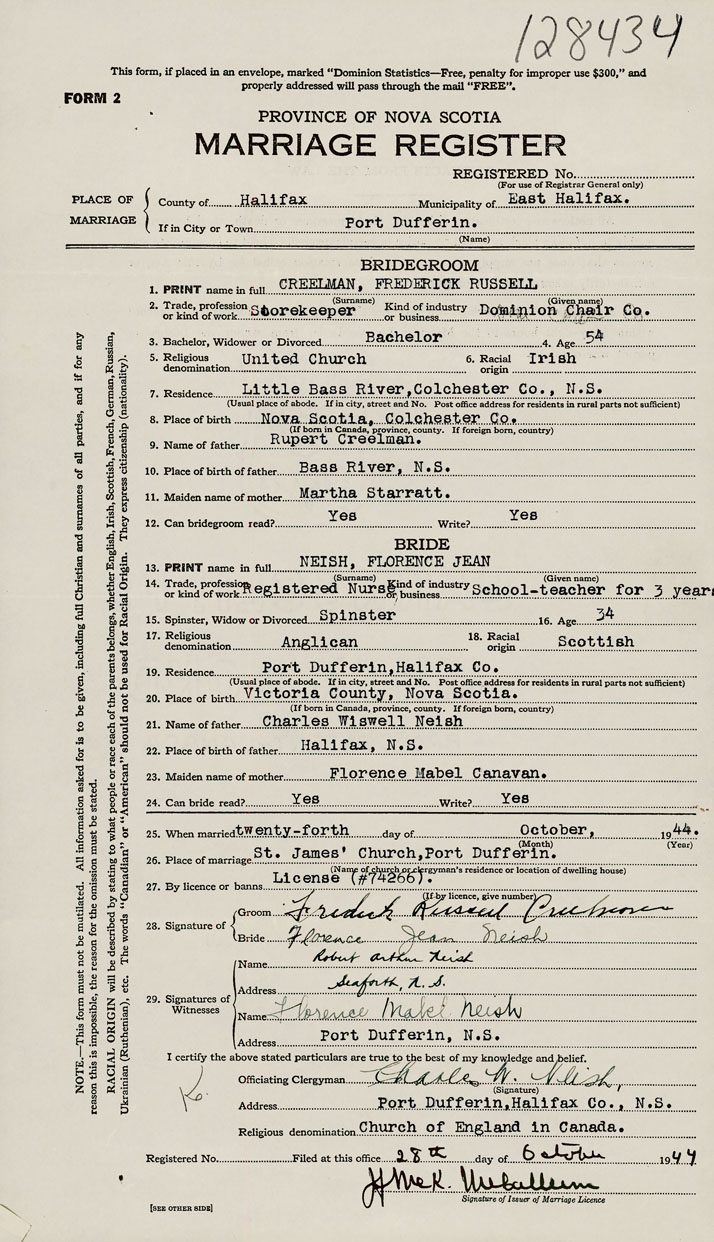 128434
This form, if placed in an envelope, marked "Dominion Statistics—Free, penalty for improper use $300," and
properly addressed will pass through the mail "FREE".
FORM 2
PROVINCE OF NOVA SCOTIA
MARRIAGE REGISTER
REGISTERED No.
(For use of Registrar General only)
PLACE OF MARRIAGE
County of Halifax Municipality of East Halifax.
If in City or Town Port Dufferin.
(Name)
BRIDEGROOM
1. PRINT name in full CREELMAN, FREDERICK RUSSELL
(Surname) (Given name)
2. Trade, profession or kind of work Storekeeper Kind of industry or business Dominion Chair Co.
3. Bachelor, Widower or Divorced Bachelor 4. Age 54
5. Religious denomination United Church 6. Racial origin Irish
7. Residence Little Bass River,Colchester Co., N.S.
(Usual place of abode. If in city, street and No. Post office address for residents in rural parts not sufficient)
8. Place of birth Nova Scotia, Colchester Co.
(If born in Canada, province, county. If foreign born, country)
9. Name of father Rupert Creelman.
10. Place of birth of father Bass River, N.S.
11. Maiden name of mother Martha Starratt.
12. Can bridegroom read? Yes Write? Yes
BRIDE
13. PRINT name in full NEISH, FLORENCE JEAN
(Surname) (Given name)
14. Trade, profession or kind of work Registered Nurse Kind of industry or business School-teacher for 3 years
15. Spinster, Widow or Divorced Spinster 16. Age 34
17. Religious denomination Anglican 18. Racial origin Scottish
19. Residence Port Dufferin,Halifax Co.
(Usual place of abode. If in city, street and No. Post office address for residents in rural parts not sufficient)
20. Place of birth Victoria County, Nova Scotia.
(If born in Canada, province, county. If foreign born, country)
21. Name of father Charles Wiswell Neish
22. Place of birth of father Halifax, N.S.
23. Maiden name of mother Florence Mabel Canavan.
24. Can bride read? Yes Write? Yes
25. When married twenty-forth day of October, 1944.
(Month) (Year)
26. Place of marriage St. James' Church,Port Dufferin.
(Name of church or clergyman's residence or location of dwelling house)
27. By licence or banns License (#74266).
(If by licence, give number)
28. Signature of
Groom Frederick Russell Creelman
Bride Florence Jean Neish
29. Signatures of Witnesses
Name Robert Arthur Neish
Address Seaforth, N.S.
Name Florence Mabel Neish
Address Port Dufferin, N.S.
I certify the above stated particulars are true to the best of my knowledge and belief.
Officiating Clergyman Charles W. Neish,
(Signature)
Address Port Dufferin,Halifax Co., N.S.
Religious denomination Church of England in Canada.
Registered No. Filed at this office 28th day of October 1944
Signature of Issuer of Marriage Licence
[SEE OTHER SIDE]
NOTE.—This form must not be mutilated. All information asked for is to be given, including full Christian and surnames of all parties, and if for any
reason this is impossible, the reason for the omission must be stated.
RACIAL ORIGIN will be described by stating to what people or race each of the parents belongs, whether English, Irish, Scottish, French, German, Russian,
Ukrainian (Ruthenian), etc. The words "Canadian" or "American" should not be used for Racial Origin. They express citizenship (nationality).